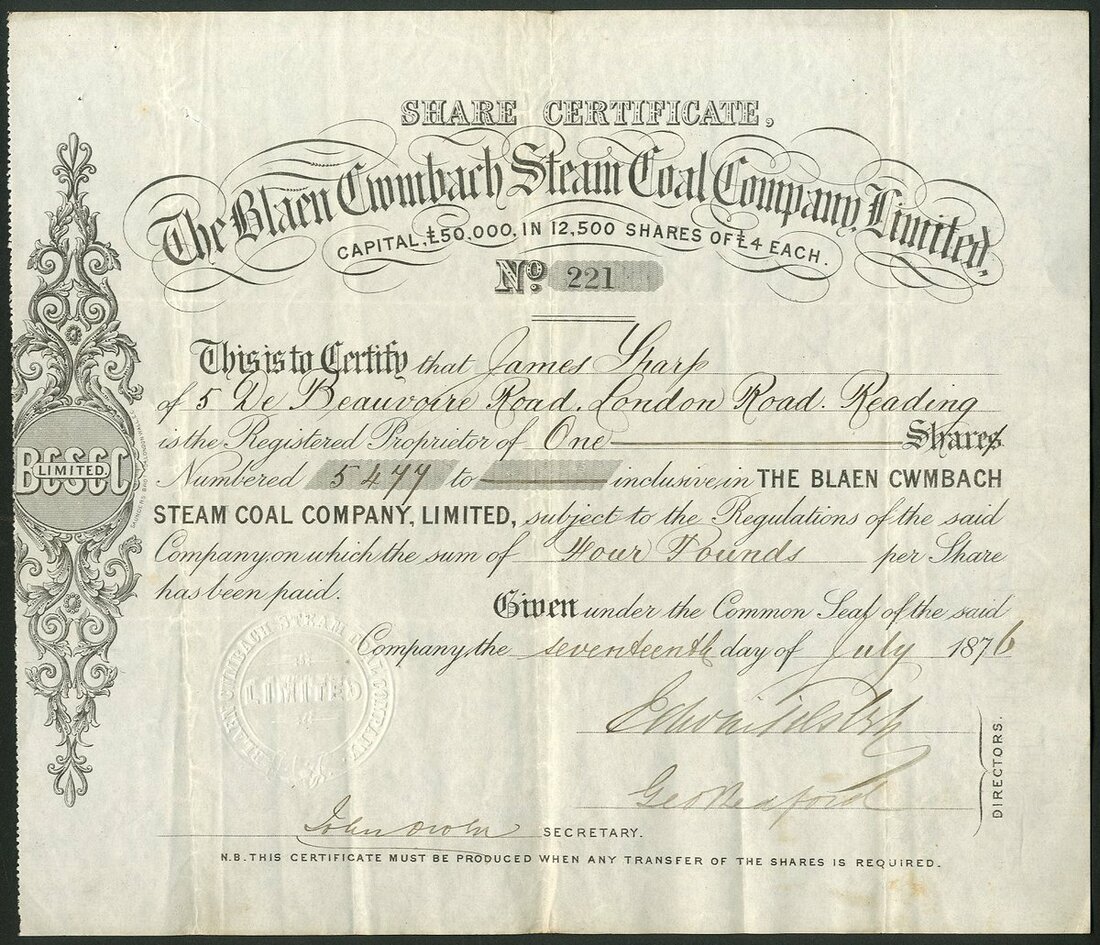 SHARE CERTIFICATE,
The Blaen Cwmbach Steam Coal Company, Limited,
CAPITAL, £50,000, IN 12,500 SHARES OF £4 EACH.
No. 221
This is to Certify that James Sharp
of 5 De Beauvoire Road. London Road. Reading
is the Registered Proprietor of One Shares
Numbered 5477 to inclusive in THE BLAEN CWMBACH
STEAM COAL COMPANY, LIMITED, subject to the Regulations of the said
Company, on which the sum of Four Pounds per Share
has been paid.
Given under the Common Seal of the said
Company, the seventeenth day of July 1876
BCSCC
LIMITED.
BLAEN CWMBACH STEAM COAL COMPANY
LIMITED
Geo Redford
DIRECTORS.
John SECRETARY.
N.B. THIS CERTIFICATE MUST BE PRODUCED WHEN ANY TRANSFER OF THE SHARES IS REQUIRED.